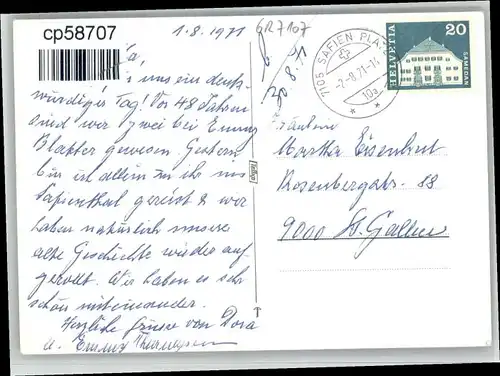 cp58707
1.8.1971
GR7107
30.8.71
7105 SAFIEN PLATZ
-2.-8.71-1
10a
HELVETIA
20
SAMEDAN
uns ein denk-
würdiger Tag! Vor 48 Jahren
sind wir zwei bei Emmy
gewesen. Gestern
bin ich allein zu ihr ins
Safiental gereist & wir
haben natürlich unsere
alte Geschichte wieder auf-
gerollt. Wir haben es sehr
schön miteinander.
Herzliche Grüsse von Dora
u. Emmy
Fräulein
Martha Eisenhut
Rosenbergstr. 88
9000 St. Gallen